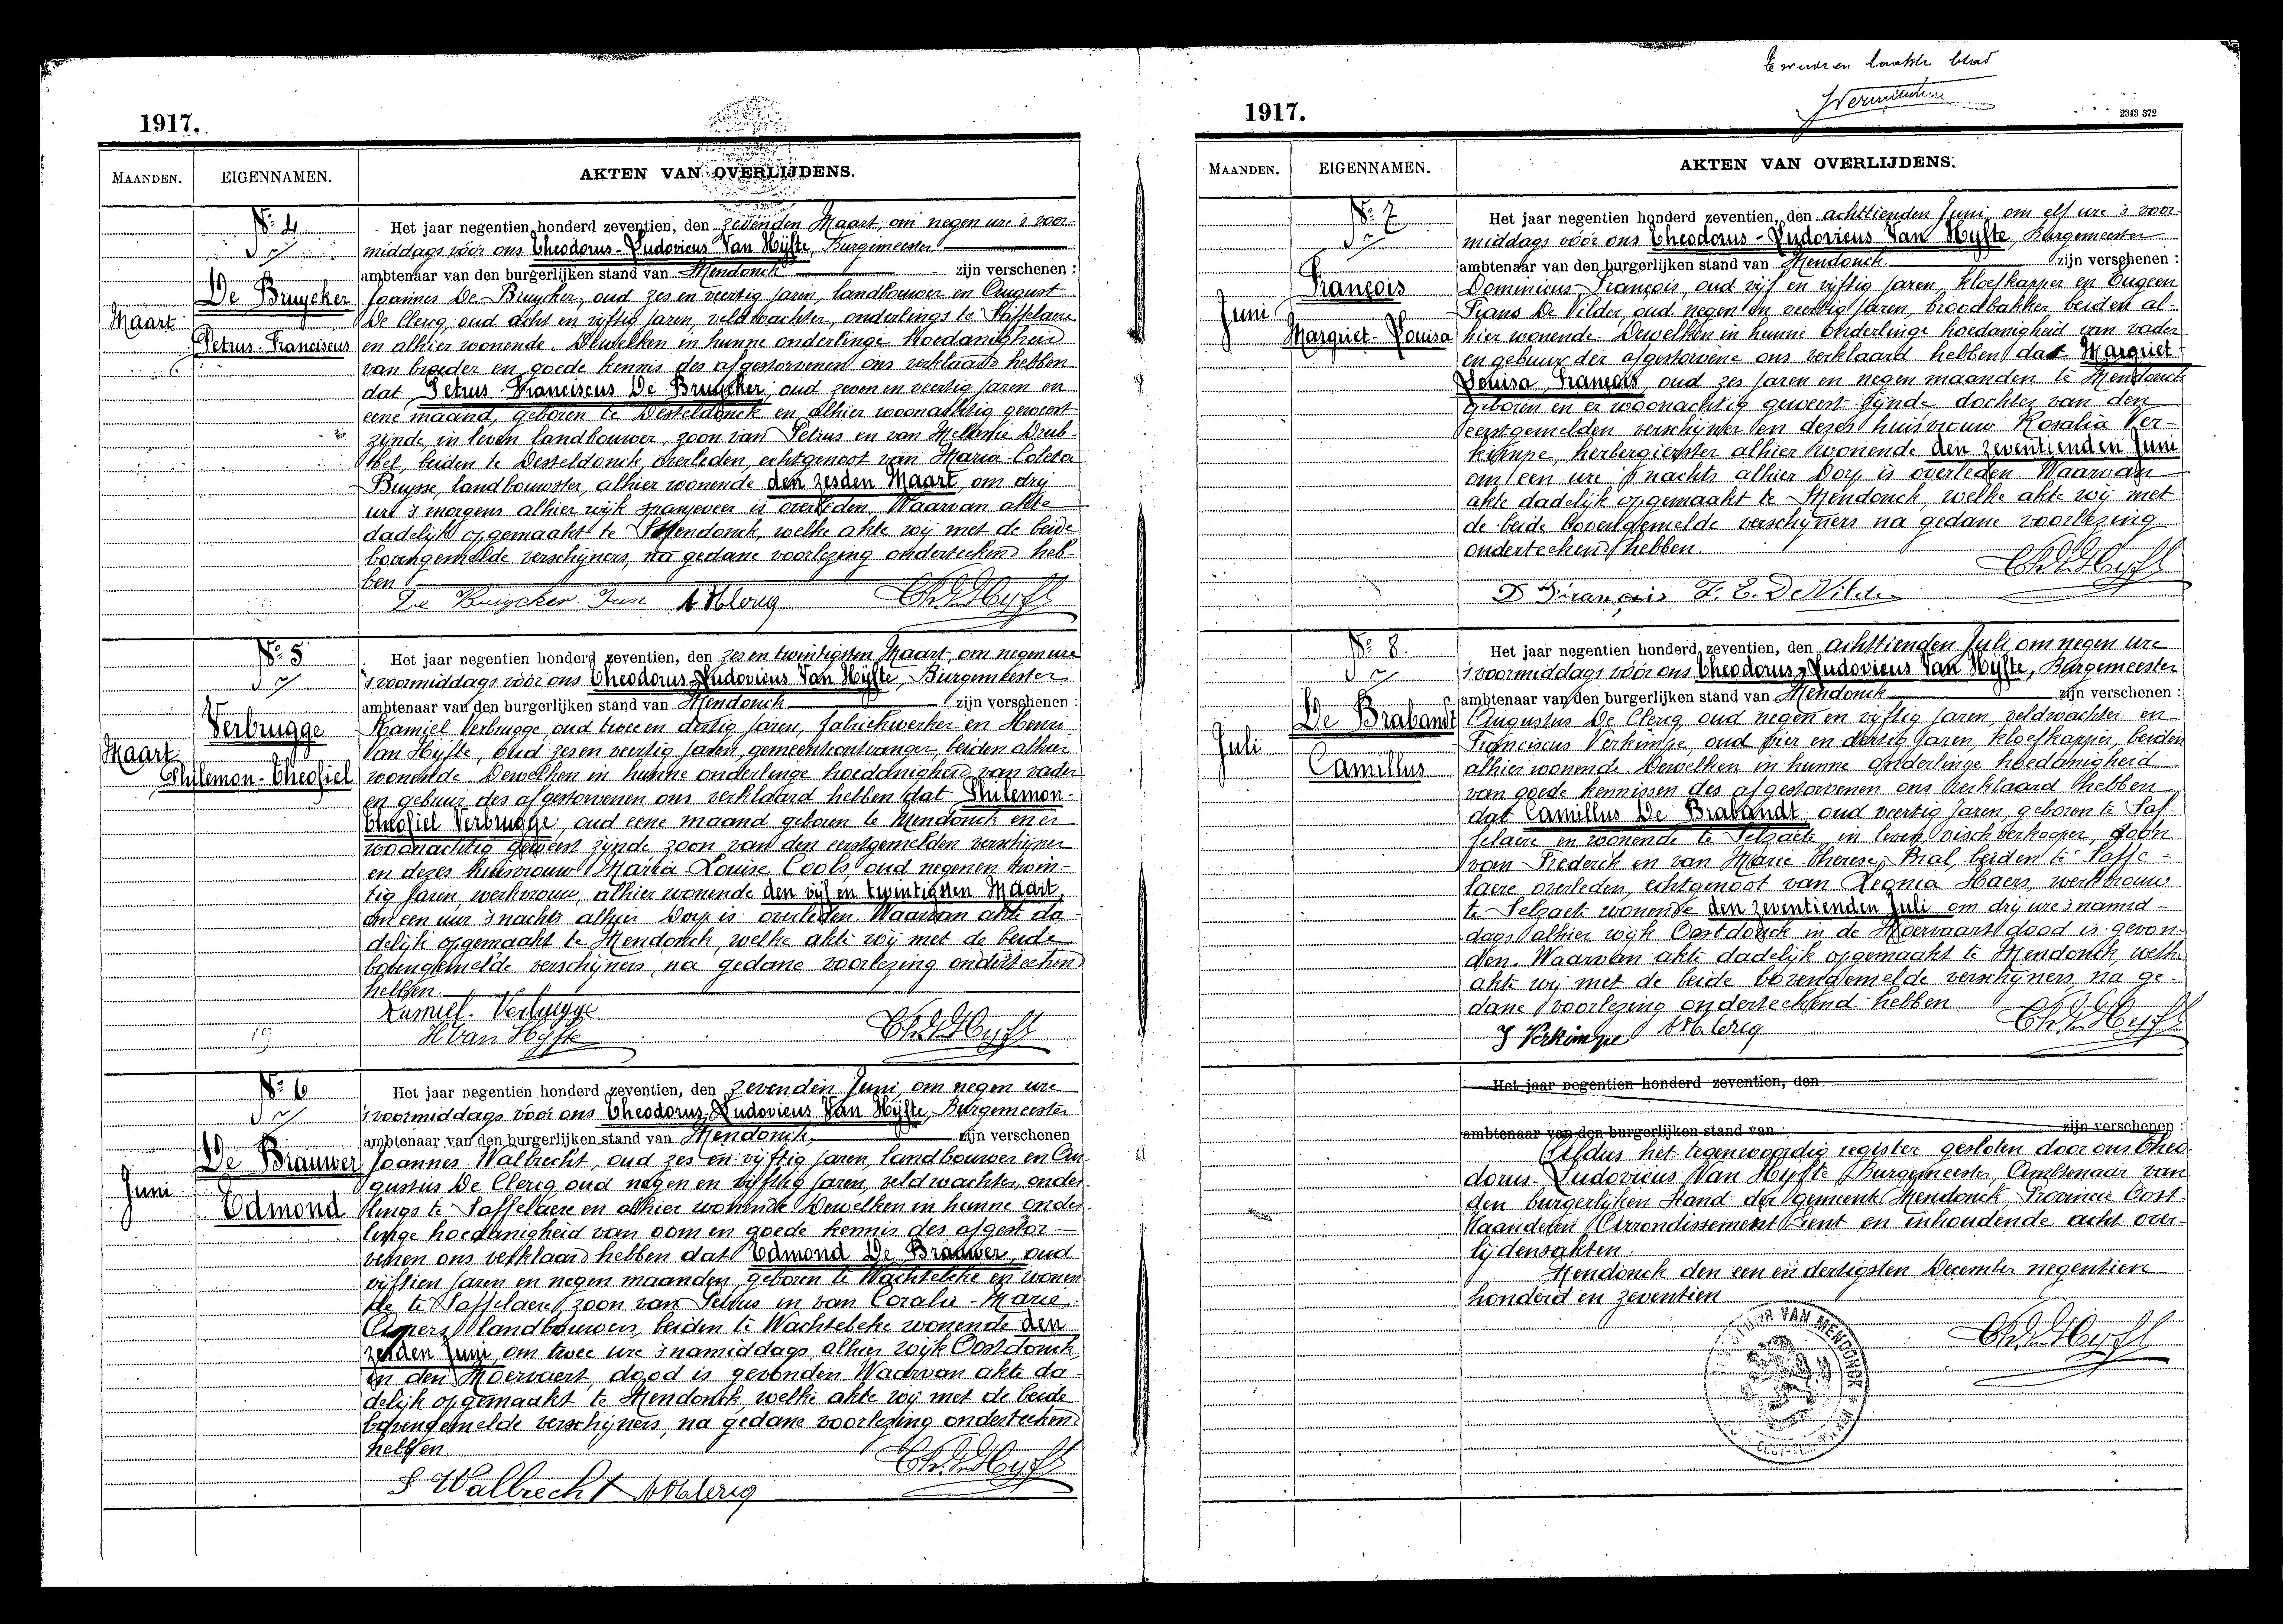 1917.
MAANDEN.
EIGENNAMEN.
AKTEN VAN OVERLIJDENS.
Nº 4
Maart
De Bruycker
Petrus-Franciscus
Het jaar negentien honderd zeventien, den zevenden Maart, om negen ure 's voor-
middags vóór ons Theodorus-Ludovicus Van Hÿfte, Burgemeester
ambtenaar van den burgerlijken stand van Mendonck zijn verschenen :
Joannes De Bruycker, oud zes en veertig jaren, landbouwer en August
De Clerq, oud acht en vijftig jaren, veldwachter, onderlings te Saffelaere
en alhier wonende. Dewelken in hunne onderlinge hoedanigheid
van broeder en goede kennis des afgestorvenen ons verklaard hebben
dat Petrus-Franciscus De Bruycker, oud zeven en veertig jaren en
eene maand, geboren te Desteldonck en alhier woonachtig geweest
zijnde, in leven landbouwer, zoon van Petrus en van Melanie Drub-
bel, beiden te Desseldonck overleden, echtgenoot van Maria Coleta
Buysse, landbouwster, alhier wonende den zesden Maart, om dry
ure 's morgens alhier wijk spanjeveer is overleden. Waarvan akte
dadelijk opgemaakt te Mendonck, welke akte wij met de beide
bovengemelde verschijners, na gedane voorlezing onderteekend heb-
ben
De Bruycker Jan A. De Clerq
Nº 5
Maart
Verbrugge
Philemon-Theofiel
Het jaar negentien honderd zeventien, den zes en twintigsten Maart, om negen ure
'svoormiddags vóór ons Theodorus-Ludovicus Van Hÿfte, Burgemeester
ambtenaar van den burgerlijken stand van Mendonck zijn verschenen :
Kamiel Verbrugge oud twee en dertig jaren, fabriekwerker en Henri
Van Hyfte, oud zes en veertig jaren, gemeenteontvanger, beiden alhier
wonende Dewelken in hunne onderlinge hoedanigheid van vader
en gebuur des afgestorvenen ons verklaard hebben dat Philemon-
Theofiel Verbrugge, oud eene maand geboren te Mendonck en er
woonachtig geweest zijnde zoon van den eerstgemelden verschijner
en dezes huisvrouw Maria Louise Cools, oud negen en twin-
tig jaren, werkvrouw, alhier wonende den vijf en twintigsten Maart,
om een uur 's nachts alhier Dorp is overleden. Waarvan akte da-
delijk opgemaakt te Mendonck, welke akte wij met de beide
bovengemelde verschijners, na gedane voorlezing onderteekend
hebben.
Kamiel Verbrugge
H Van Hyfte
Nº 6
Juni
De Brauwer
Edmond
Het jaar negentien honderd zeventien, den zevenden Juni, om negen ure
'svoormiddags vóór ons Theodorus-Ludovicus Van Hÿfte, Burgemeester
ambtenaar van den burgerlijken stand van Mendonck, zijn verschenen
Joannes Walbrecht, oud zes en vijftig jaren, landbouwer en Au-
gustus De Clerq oud negen en vijftig jaren, veldwachter, onder-
lings te Saffelaere en alhier wonende Dewelken in hunne onder-
linge hoedanigheid van oom en goede kennis des afgestor-
venen ons verklaard hebben dat Edmond De Brauwer, oud
vijftien jaren en negen maanden, geboren te Wachtebeke en wonen-
de te Saffelaere, zoon van Petrus en van Coralie-Marie
Aspers, landbouwers, beiden te Wachtebeke wonende den
zesden Juni, om twee ure 'snamiddags, alhier wijk Oostdonck
in den Moervaert dood is gevonden Waarvan akte da-
delijk opgemaakt te Mendonck, welke akte wij met de beide
bovengemelde verschijners, na gedane voorlezing onderteekend
hebben
S Walbrecht A. De Clerq
1917.
2343 372
MAANDEN.
EIGENNAMEN.
AKTEN VAN OVERLIJDENS.
Nº 7
Juni
François
Margriet-Louisa
Het jaar negentien honderd zeventien, den achttienden Juni, om elf ure 's voor-
middags vóór ons Theodorus-Ludovicus Van Hÿfte, Burgemeester
ambtenaar van den burgerlijken stand van Mendonck zijn verschenen :
Dominicus François, oud vijf en vijftig jaren, kloefkapper en Eugeen
Frans De Vilder oud negen en veertig jaren, broodbakker beiden al-
hier wonende Dewelken in hunne onderlinge hoedanigheid van vader
en gebuur der afgestorvene ons verklaard hebben dat Margriet-
Louisa François, oud zes jaren en negen maanden te Mendonck
geboren en er woonachtig geweest zijnde, dochter van den
eerstgemelden verschijner en dezes huisvrouw Rosalia Ver-
kimpe, herbergierster alhier wonende den zeventienden Juni
om een ure 's nachts alhier Dorp is overleden Waarvan
akte dadelijk opgemaakt te Mendonck, welke akte wij met
de beide bovengemelde verschijners na gedane voorlezing
onderteekend hebben.
D François F. E. De Vilder
Nº 8
Juli
De Brabandt
Camillus
Het jaar negentien honderd zeventien, den achttienden Juli, om negen ure
'svoormiddags vóór ons Theodorus-Ludovicus Van Hÿfte, Burgemeester
ambtenaar van den burgerlijken stand van Mendonck zijn verschenen :
Augustus De Clerq, oud negen en vijftig jaren, veldwachter en
Franciscus Verkimpe, oud vier en dertig jaren, kloefkapper, beiden
alhier wonende Dewelken in hunne onderlinge hoedanigheid
van goede kennissen des afgestorvenen ons verklaard hebben
dat Camillus De Brabandt oud veertig jaren, geboren te Saf-
felaere en wonende te Selzaete, in leven vischverkooper, zoon
van Frederik en van Marie Therese Pral, beiden te Saffe-
laere overleden, echtgenoot van Leonia Haers, werkvrouw
te Selzaete wonende den zeventienden Juli om drij ure 'snamid-
dags alhier wijk Oostdonck in de Moervaart dood is gevon-
den. Waarvan akte dadelijk opgemaakt te Mendonck, welke
akte wij met de beide bovengemelde verschijners, na ge-
dane voorlezing onderteekend hebben
F Verkimpe A. De Clerq
Het jaar negentien honderd zeventien, den
ambtenaar van den burgerlijken stand van zijn verschenen :
Aldus het tegenwoordig register gesloten door ons Theo-
dorus-Ludovicus Van Hyfte Burgemeester, Ambtenaar van
den burgerlijken Stand der gemeente Mendonck, Provincie Oost-
Vlaanderen Arrondissement Gent en inhoudende acht over-
lijdensakten.
Mendonck den een en dertigsten December negentien
honderd en zeventien
VAN MENDONCK